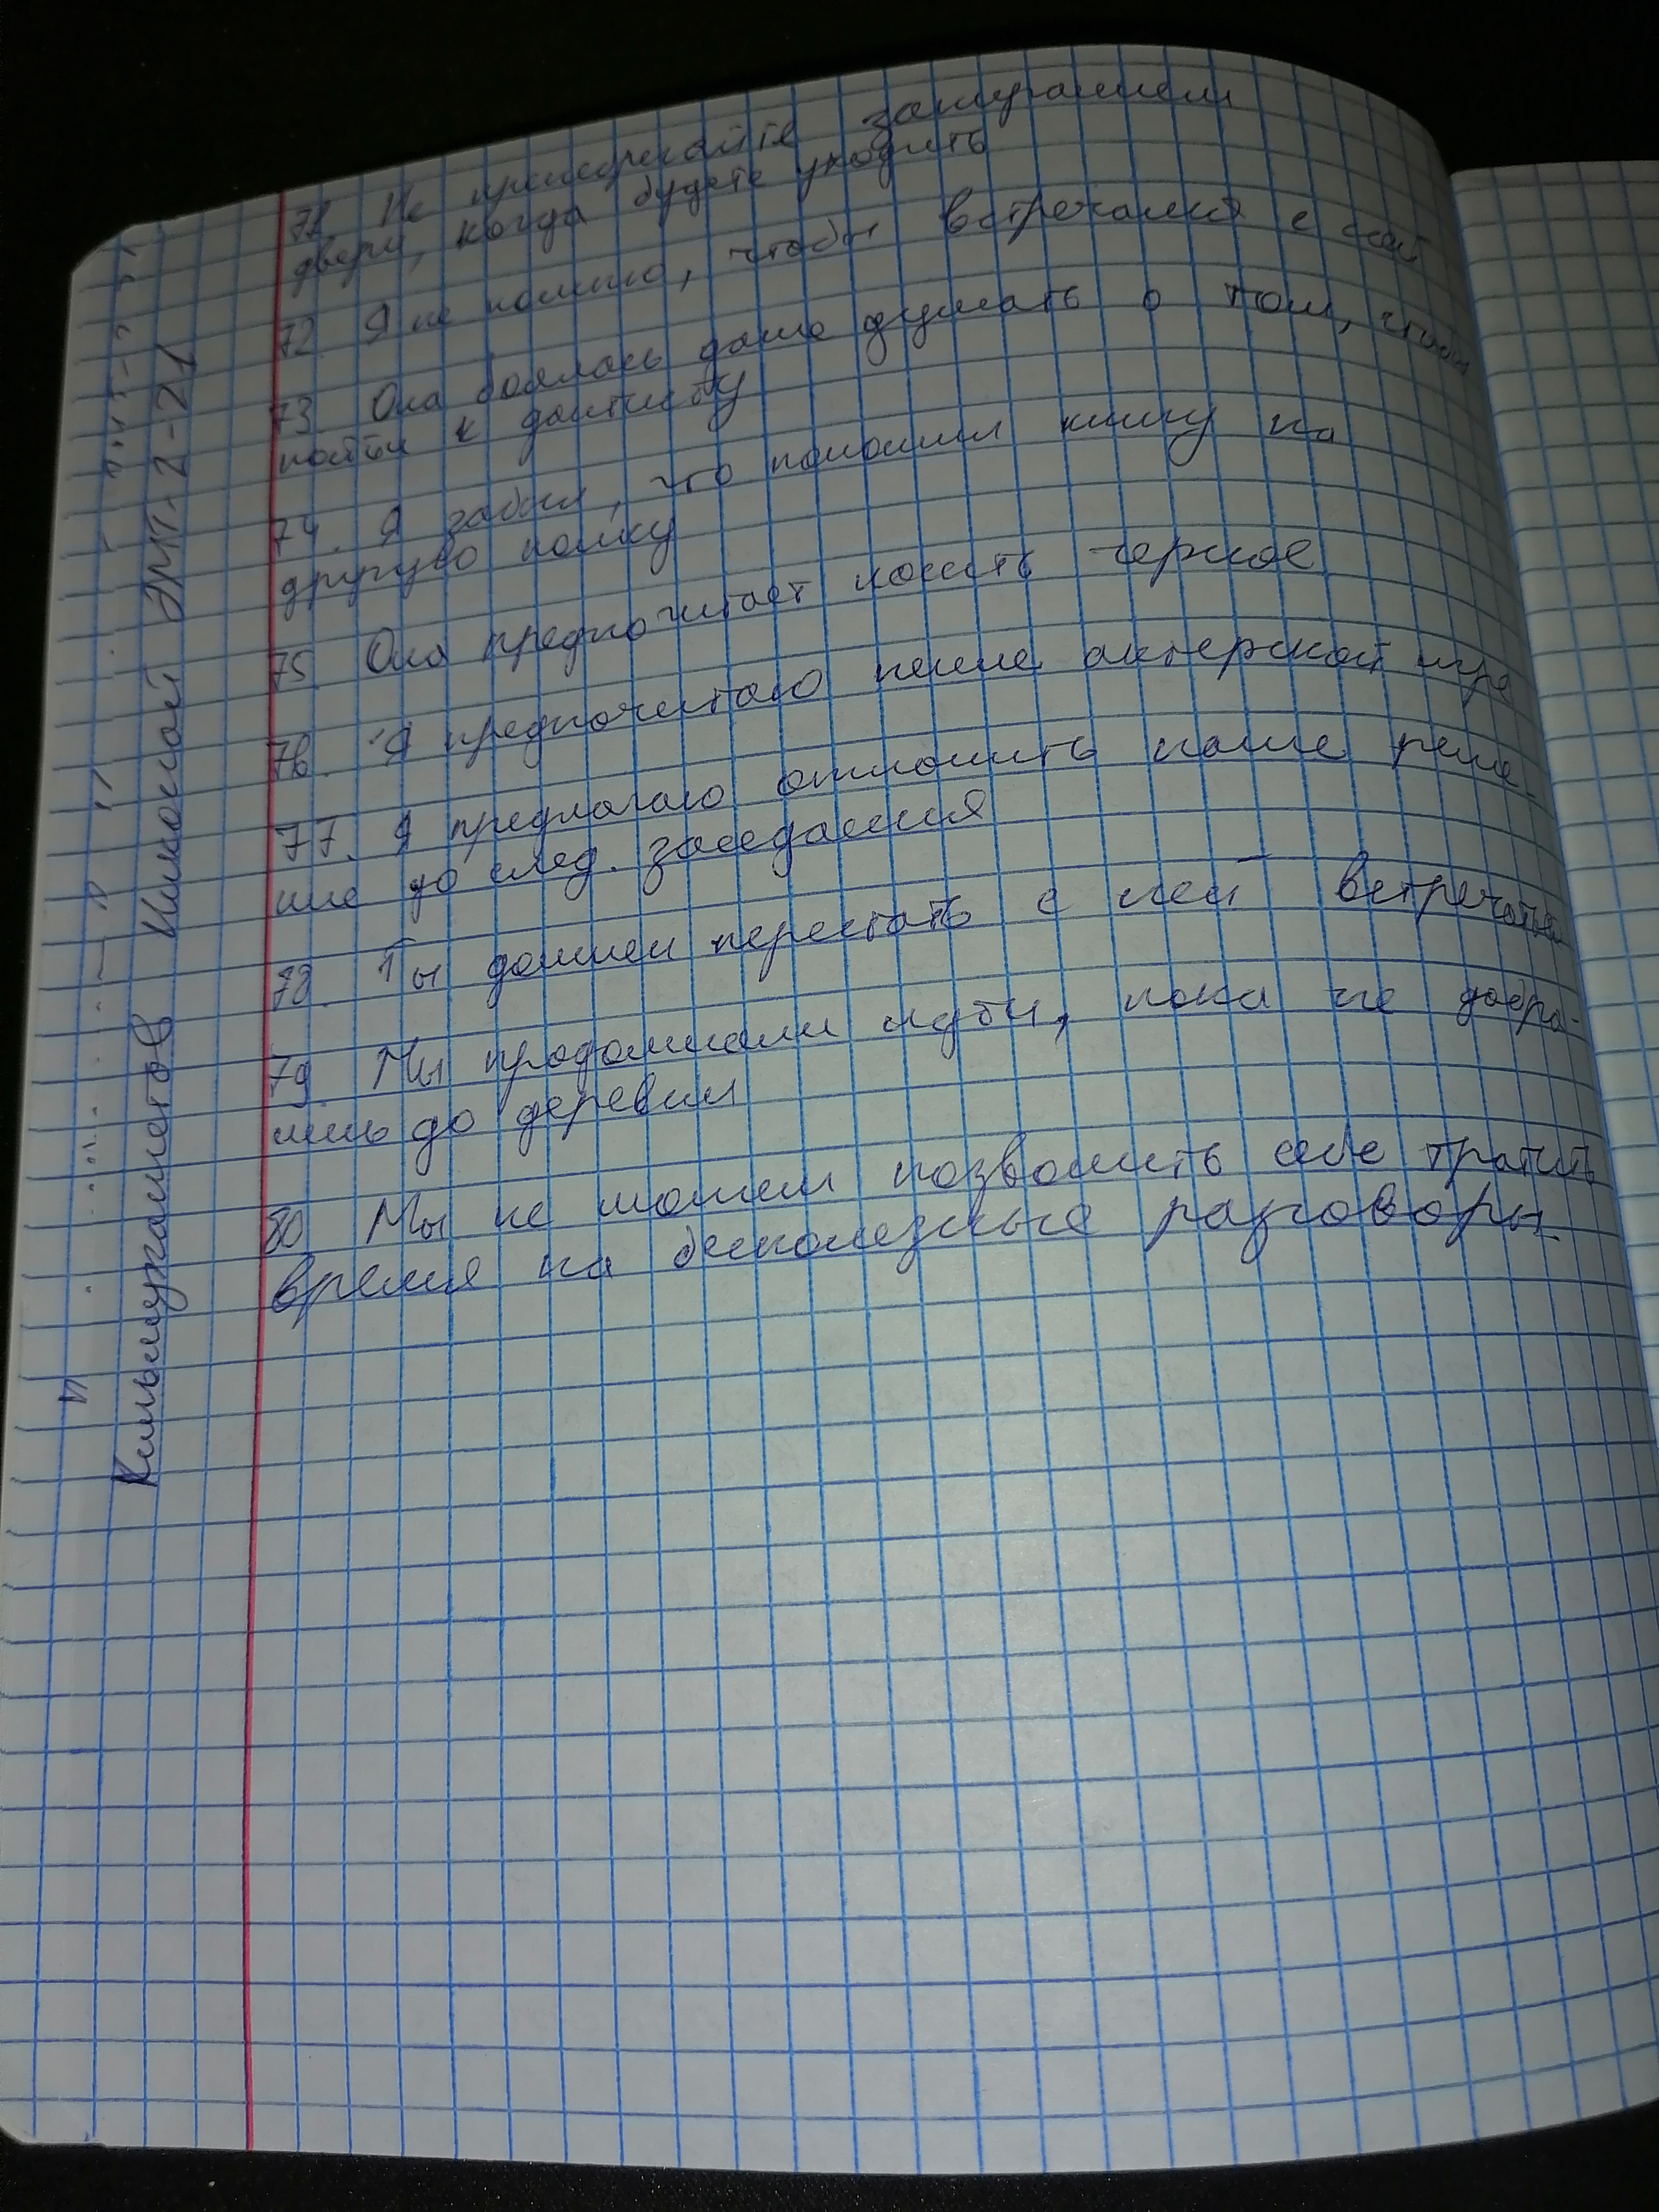 71. Не пренебрегайте запиранием
двери, когда будете уходить
72. Я не помню, чтобы встречался с ней
73. Она боялась даже думать о том, чтобы
пойти к дантисту
74. Я забыл, что положил книгу на
другую полку
75. Она предпочитает носить черное
76. Я предпочитаю пение актерской игре
77. Я предлагаю отложить наше реше-
ние до след. заседания
78. Ты должен перестать с ней встречаться
79. Мы продолжали идти, пока не добра-
лись до деревни
80 Мы не можем позволить себе тратить
время на бесполезные разговоры
Кильмухаметов Николай ЭМТ-2-21